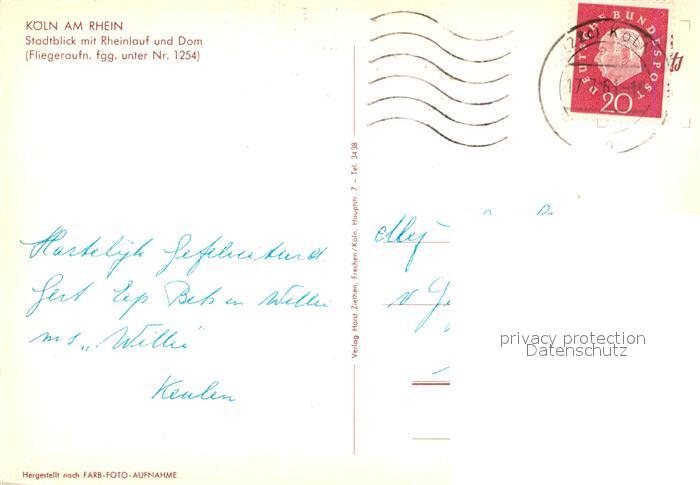 KÖLN AM RHEIN
Stadtblick mit Rheinlauf und Dom
(Fliegeraufn. fgg. unter Nr. 1254)
DEUTSCHE BUNDESPOST
20
KÖLN
Hartelijk Gefeliciteerd.
Gert Eep Bets en Willie
ms „Willie"
Keulen
Mej
v
privacy protection
Datenschutz
Verlag Horst Ziethen, Frechen/Köln, Hauptstr. 7 – Tel. 3438
Hergestellt nach FARB-FOTO-AUFNAHME